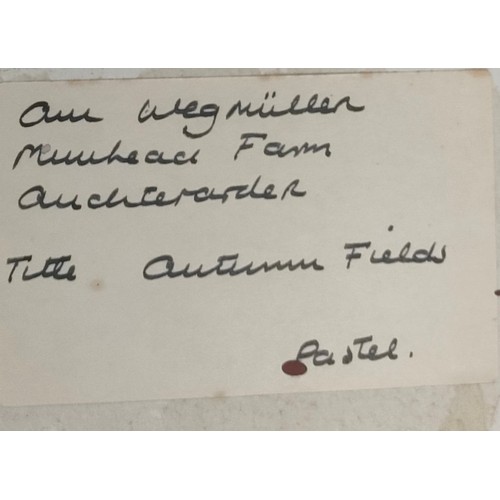 Ann Wegmüller
Muirhead Farm
Auchterarder
Title Autumn Fields
Pastel.